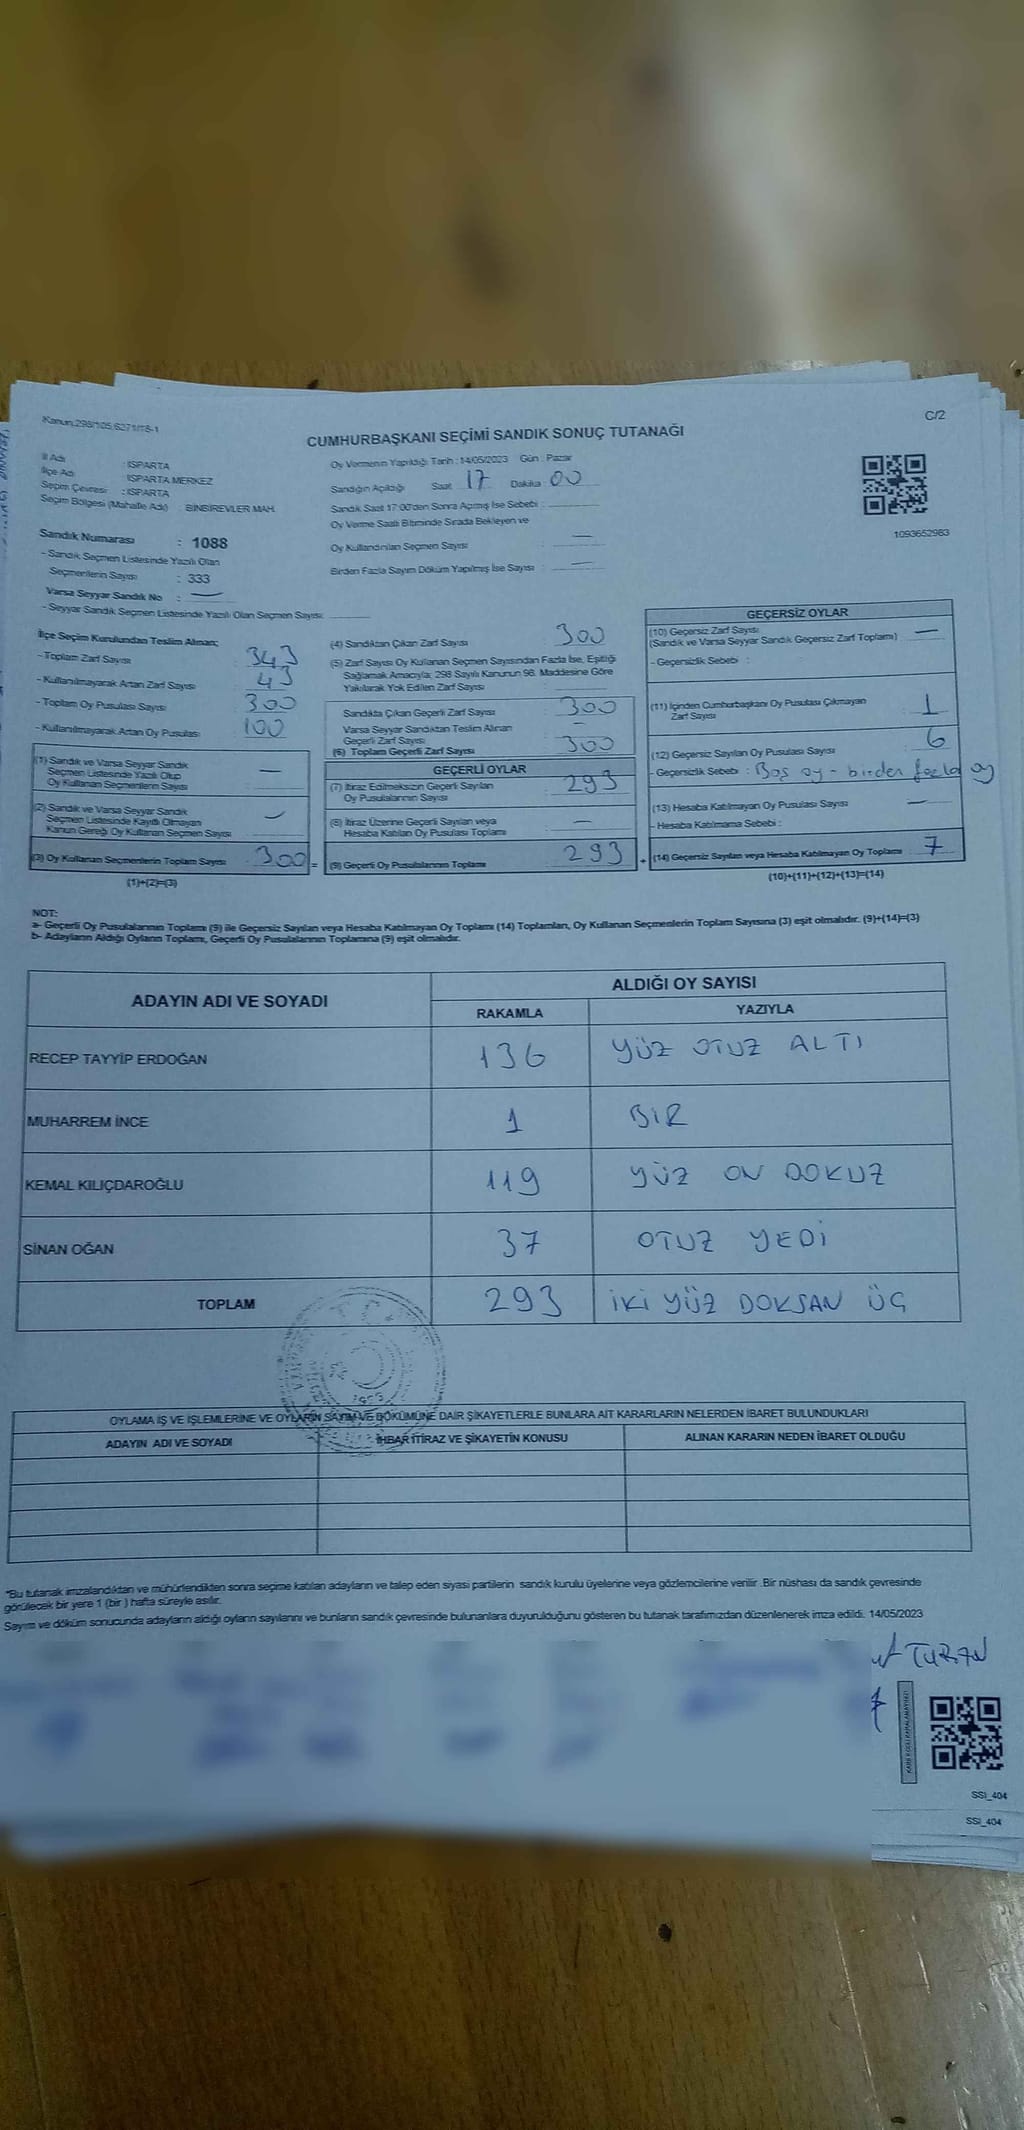 Kanun:298/105,6271/18-1
C/2
CUMHURBAŞKANI SEÇİMİ SANDIK SONUÇ TUTANAĞI
İl Adı : ISPARTA
İlçe Adı ISPARTA MERKEZ
Seçim Çevresi : ISPARTA
Seçim Bölgesi (Mahalle Adı) BİNBİREVLER MAH.
Sandık Numarası : 1088
- Sandık Seçmen Listesinde Yazılı Olan
Seçmenlerin Sayısı : 333
Varsa Seyyar Sandık No : —
- Seyyar Sandık Seçmen Listesinde Yazılı Olan Seçmen Sayısı:
Oy Vermenin Yapıldığı Tarih : 14/05/2023 Gün : Pazar
Sandığın Açıldığı Saat 17 Dakika : 00
Sandık Saat 17:00'den Sonra Açılmış İse Sebebi :
Oy Verme Saati Bitiminde Sırada Bekleyen ve
Oy Kullandırılan Seçmen Sayısı : —
Birden Fazla Sayım Döküm Yapılmış İse Sayısı : —
1093652983
İlçe Seçim Kurulundan Teslim Alınan;
- Toplam Zarf Sayısı : 343
- Kullanılmayarak Artan Zarf Sayısı : 43
- Toplam Oy Pusulası Sayısı : 300
- Kullanılmayarak Artan Oy Pusulası : 100
(1) Sandık ve Varsa Seyyar Sandık
Seçmen Listesinde Yazılı Olup
Oy Kullanan Seçmenlerin Sayısı —
(2) Sandık ve Varsa Seyyar Sandık
Seçmen Listesinde Kayıtlı Olmayan
Kanun Gereği Oy Kullanan Seçmen Sayısı —
(3) Oy Kullanan Seçmenlerin Toplam Sayısı 300 =
(1)+(2)=(3)
(4) Sandıktan Çıkan Zarf Sayısı : 300
(5) Zarf Sayısı Oy Kullanan Seçmen Sayısından Fazla İse, Eşitliği
Sağlamak Amacıyla; 298 Sayılı Kanunun 98. Maddesine Göre
Yakılarak Yok Edilen Zarf Sayısı
Sandıkta Çıkan Geçerli Zarf Sayısı : 300
Varsa Seyyar Sandıktan Teslim Alınan
Geçerli Zarf Sayısı : —
(6) Toplam Geçerli Zarf Sayısı : 300
GEÇERLİ OYLAR
(7) İtiraz Edilmeksizin Geçerli Sayılan
Oy Pusulalarının Sayısı : 293
(8) İtiraz Üzerine Geçerli Sayılan veya
Hesaba Katılan Oy Pusulası Toplamı : —
(9) Geçerli Oy Pusulalarının Toplamı : 293 +
GEÇERSİZ OYLAR
(10) Geçersiz Zarf Sayısı
(Sandık ve Varsa Seyyar Sandık Geçersiz Zarf Toplamı) : —
- Geçersizlik Sebebi :
(11) İçinden Cumhurbaşkanı Oy Pusulası Çıkmayan
Zarf Sayısı : 1
(12) Geçersiz Sayılan Oy Pusulası Sayısı : 6
- Geçersizlik Sebebi : Boş oy - birden fazla oy
(13) Hesaba Katılmayan Oy Pusulası Sayısı : —
- Hesaba Katılmama Sebebi :
(14) Geçersiz Sayılan veya Hesaba Katılmayan Oy Toplamı : 7
(10)+(11)+(12)+(13)=(14)
NOT:
a- Geçerli Oy Pusulalarının Toplamı (9) ile Geçersiz Sayılan veya Hesaba Katılmayan Oy Toplamı (14) Toplamları, Oy Kullanan Seçmenlerin Toplam Sayısına (3) eşit olmalıdır. (9)+(14)=(3)
b- Adayların Aldığı Oyların Toplamı, Geçerli Oy Pusulalarının Toplamına (9) eşit olmalıdır.
ADAYIN ADI VE SOYADI
ALDIĞI OY SAYISI
RAKAMLA YAZIYLA
RECEP TAYYİP ERDOĞAN 136 YÜZ OTUZ ALTI
MUHARREM İNCE 1 BİR
KEMAL KILIÇDAROĞLU 119 YÜZ ON DOKUZ
SİNAN OĞAN 37 OTUZ YEDİ
TOPLAM 293 İKİ YÜZ DOKSAN ÜÇ
T.C.
OYLAMA İŞ VE İŞLEMLERİNE VE OYLARIN SAYIM VE DÖKÜMÜNE DAİR ŞİKAYETLERLE BUNLARA AİT KARARLARIN NELERDEN İBARET BULUNDUKLARI
ADAYIN ADI VE SOYADI İHBAR İTİRAZ VE ŞİKAYETİN KONUSU ALINAN KARARIN NEDEN İBARET OLDUĞU
*Bu tutanak imzalandıktan ve mühürlendikten sonra seçime katılan adayların ve talep eden siyasi partilerin sandık kurulu üyelerine veya gözlemcilerine verilir. Bir nüshası da sandık çevresinde
görülecek bir yere 1 (bir ) hafta süreyle asılır.
Sayım ve döküm sonucunda adayların aldığı oyların sayılarını ve bunların sandık çevresinde bulunanlara duyurulduğunu gösteren bu tutanak tarafımızdan düzenlenerek imza edildi. 14/05/2023
TURAN
SSI_404
SSI_404